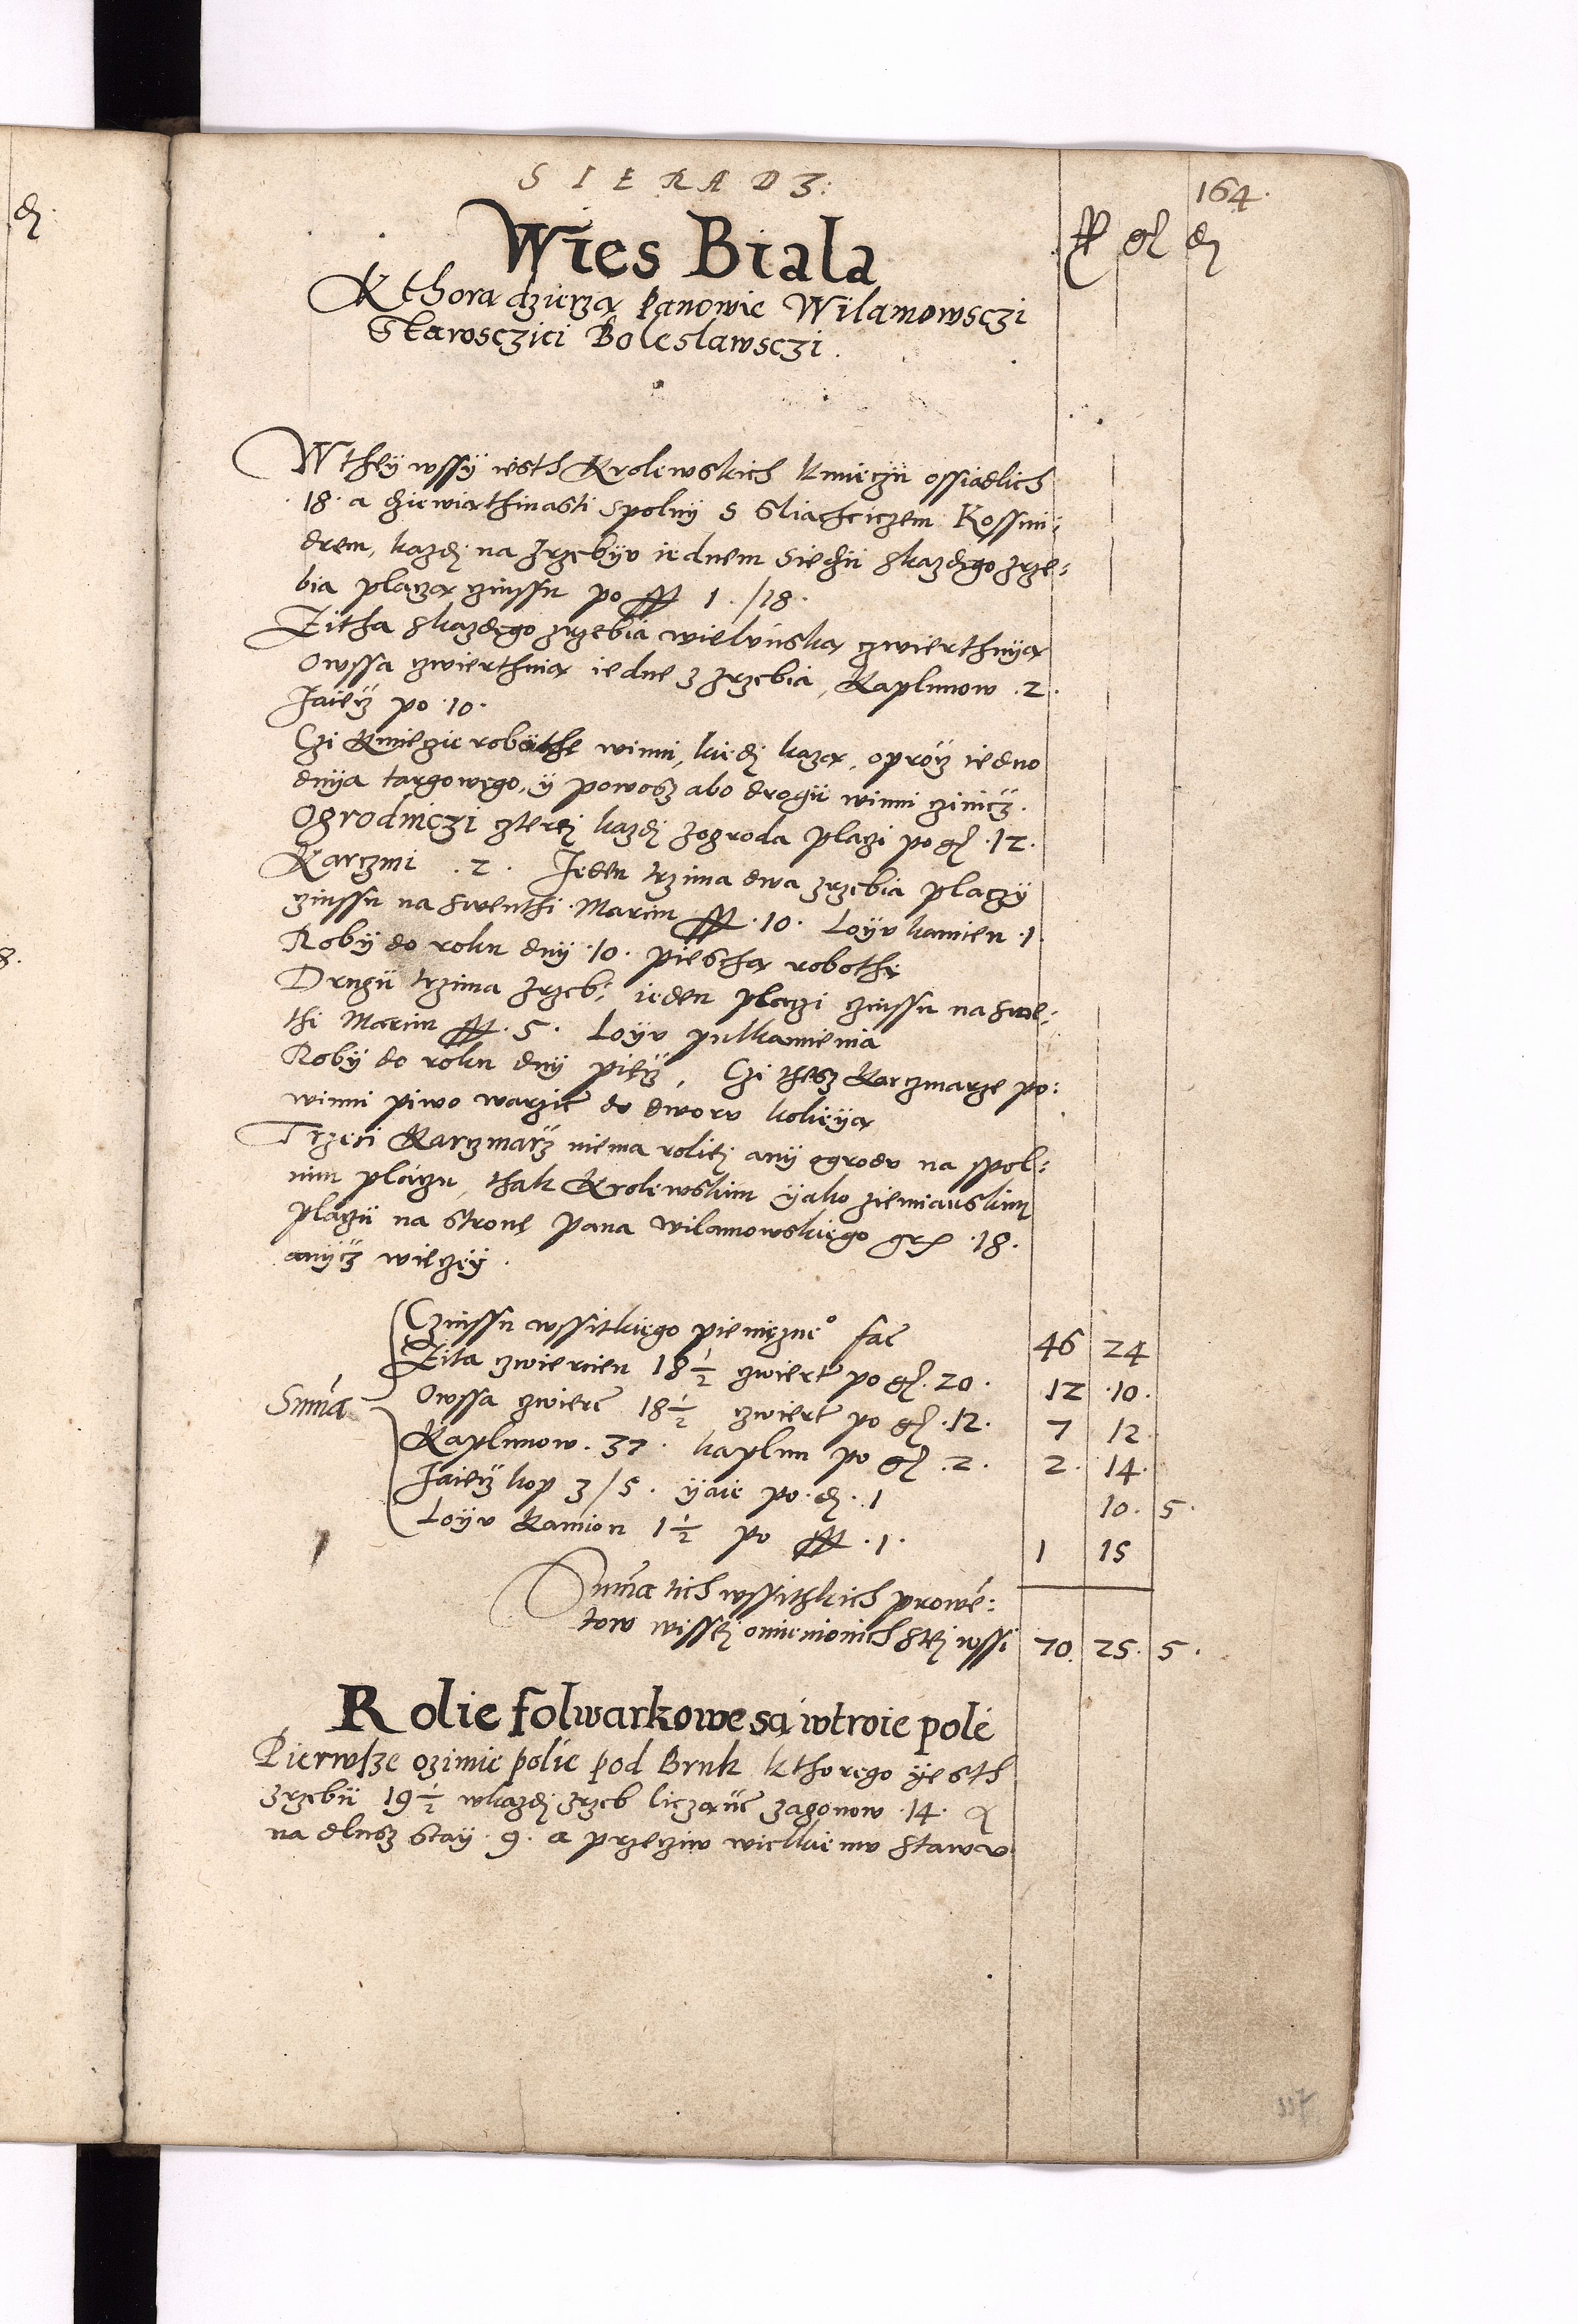 SIERADZ:
164.
Wies Biala
gr d
Kthora dzierza Panowie Wilamowsczi
Starosczici Boleslawsczi.
W they wssÿ iesth Krolewskich kmieczii ossiadlich
18. a dziewiathinasti spolny s Sliachciczem Kossmi:
drem, kazdy na zrzebyv iednem Siedzii skazdego zrze:
bia placza czinssu po 1./18.
Zitha skazdego zrzebia wielunska czwierthnya
Owssa czwierthnia iedne z zrzebia, Kaplunow .2.
Jaiecz po .10.
Czi Kmiecie robothe winni, kiedy kaza, opröcz iedno
dnya targowego, ÿ powosz abo drogii winni czinicz.
Ogrodniczi czterej kazdj zogroda placzi po gr .12.
Karczmi .2. Jeden trzima dwa zrzebia placzÿ
czinssu na swenthi Marcin .10. Loÿv kamien .1.
Robÿ do roku dny .10. piescha robothe
Drugii trzima zrzeb: ieden placzi czinssu na swe:
thi Marcin .5. Loÿv pulkamienia
Robÿ do roku dny piecz, Czi thesz Karczmarze po:
winni piwo warzic do dworv koleÿa
Trzeci Karczmarz niema rolieÿ anÿ ogrodv na spol:
nim placzu, thak Krolewskim ÿako ziemianskim
placzii na strone Pana wilamowskiego gr .18.
anÿcz wieczeÿ.
Czinssu wssitkiego pieniezne° fac 46 24
Zita czwiercien 18½ czwiert po gr. 20. 12 .10.
Suma Owssa czwierc 18½ czwiert po gr .12. 7 12.
Kaplunow .37. kaplun po gr .2. 2. 14.
Jaiecz kop 3/5. ÿaie po. d. 1 10. 5.
Loÿv Kamion 1½ po .1. 1 15
Suma tich wssithkich prowe:
tow wissej omienionich stej wssi 70. 25. 5.
Rolie folwarkowe są wtroie pole
Pierwsze ozimie polie pod Bruk kthorego ÿesth
zrzebii 19½ wkazdj zrzeb liczaüc zagonow .14. &
na dlusz stay .9. a przeciw wielkiemv stawv
117